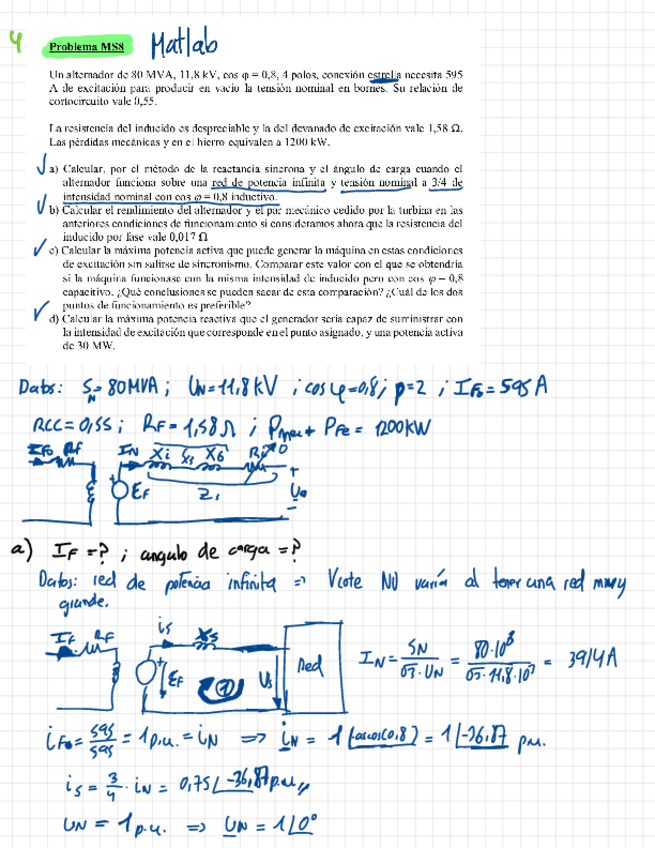 4 Problema MS8 Matlab
Un alternador de 80 MVA, 11,8 kV, cos φ = 0,8, 4 polos, conexión estrella necesita 595
A de excitación para producir en vacío la tensión nominal en bornes. Su relación de
cortocircuito vale 0,55.
La resistencia del inducido es despreciable y la del devanado de excitación vale 1,58 Ω.
Las pérdidas mecánicas y en el hierro equivalen a 1200 kW.
a) Calcular, por el método de la reactancia síncrona y el ángulo de carga cuando el
alternador funciona sobre una red de potencia infinita y tensión nominal a 3/4 de
intensidad nominal con cos φ = 0,8 inductivo.
b) Calcular el rendimiento del alternador y el par mecánico cedido por la turbina en las
anteriores condiciones de funcionamiento si consideramos ahora que la resistencia del
inducido por fase vale 0,017 Ω
c) Calcular la máxima potencia activa que puede generar la máquina en estas condiciones
de excitación sin salirse de sincronismo. Comparar este valor con el que se obtendría
si la máquina funcionase con la misma intensidad de inducido pero con cos φ = 0,8
capacitivo. ¿Qué conclusiones se pueden sacar de esta comparación? ¿Cuál de los dos
puntos de funcionamiento es preferible?
d) Calcular la máxima potencia reactiva que el generador sería capaz de suministrar con
la intensidad de excitación que corresponde en el punto asignado, y una potencia activa
de 30 MW.
Datos: S_N = 80MVA ; U_N = 11,8 kV ; cos φ = 0,8 ; p=2 ; I_F0 = 595 A
RCC = 0,55 ; R_F = 1,58 Ω ; P_mec + P_Fe = 1200 kW
I_F0 R_F I_N X_i X_s X_σ R_i≈0
+
E_F Z_i U_0
−
a) I_F = ? ; angulo de carga = ?
Datos: red de potencia infinita => Vcote NO varía al tener una red muy
grande.
I_F R_F i_s X_s
+ E_F 1 U_s Red
I_N = S_N / (√3 · U_N) = 80·10^6 / (√3 · 11,8·10^3) = 3914 A
i_F0 = 595/595 = 1 p.u. = i_N => i_N = 1 ∠acos(0,8) = 1∠-36,87 p.u.
i_s = 3/4 · i_N = 0,75 ∠-36,87 p.u.
U_N = 1 p.u. => U_N = 1∠0°